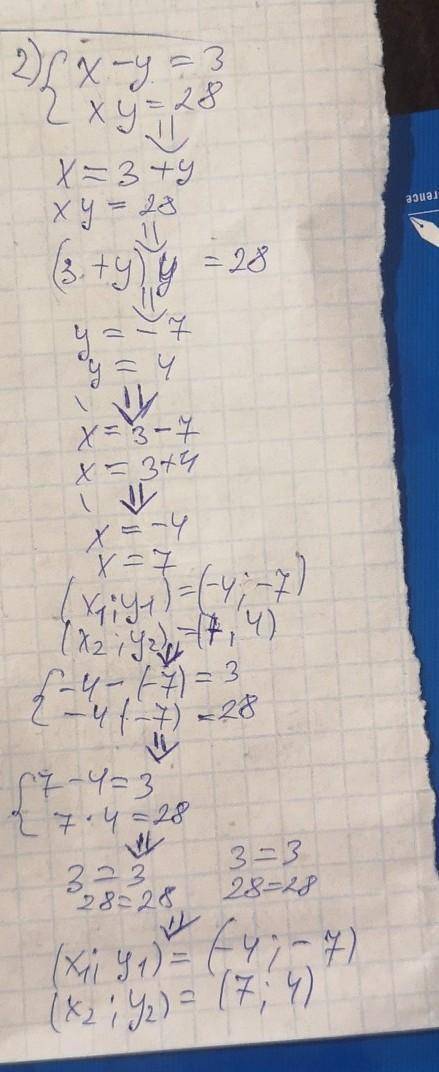 2) { x - y = 3
x y = 28
⇓
x = 3 + y
x y = 28
⇓
(3 + y) y = 28
⇓
y = -7
y = 4
⇓
x = 3 - 7
x = 3 + 4
⇓
x = -4
x = 7
(x1; y1) = (-4; -7)
(x2; y2) = (7, 4)
⇓
{ -4 - (-7) = 3
-4 (-7) = 28
⇓
{ 7 - 4 = 3
7 · 4 = 28
⇓
3 = 3 3 = 3
28 = 28 28 = 28
⇓
(x1; y1) = (-4; -7)
(x2; y2) = (7; 4)